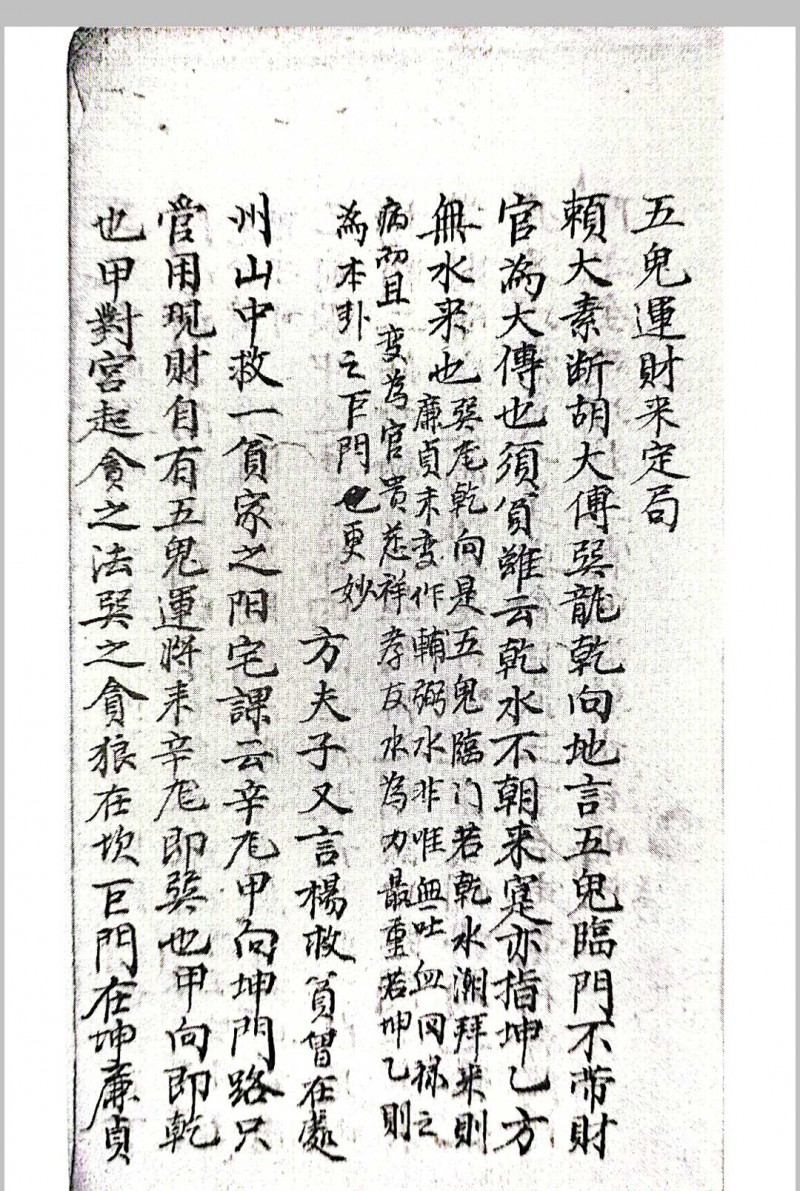 五鬼運財来定局
頼大素断胡大傅巽龍乾向地言五鬼臨門不帶財
官為大傅也須貧雖云乾水不朝来寔亦指坤乙方
無水来也巽龙乾向是五鬼臨门若乾水潮拜来則
廉貞未变作輔弼水非唯無吐血回禄之
病而且变為官贵慈祥孝友水為力最重若坤乙則
為本卦之巨門也更妙
方夫子又言楊救貧曾在處
州山中救一貧家之阳宅課云辛龙甲向坤門路只
管用現财自有五鬼運将来辛龙即巽也甲向即乾
也甲對宮起貪之法巽之貪狼在坎巨門在坤廉貞